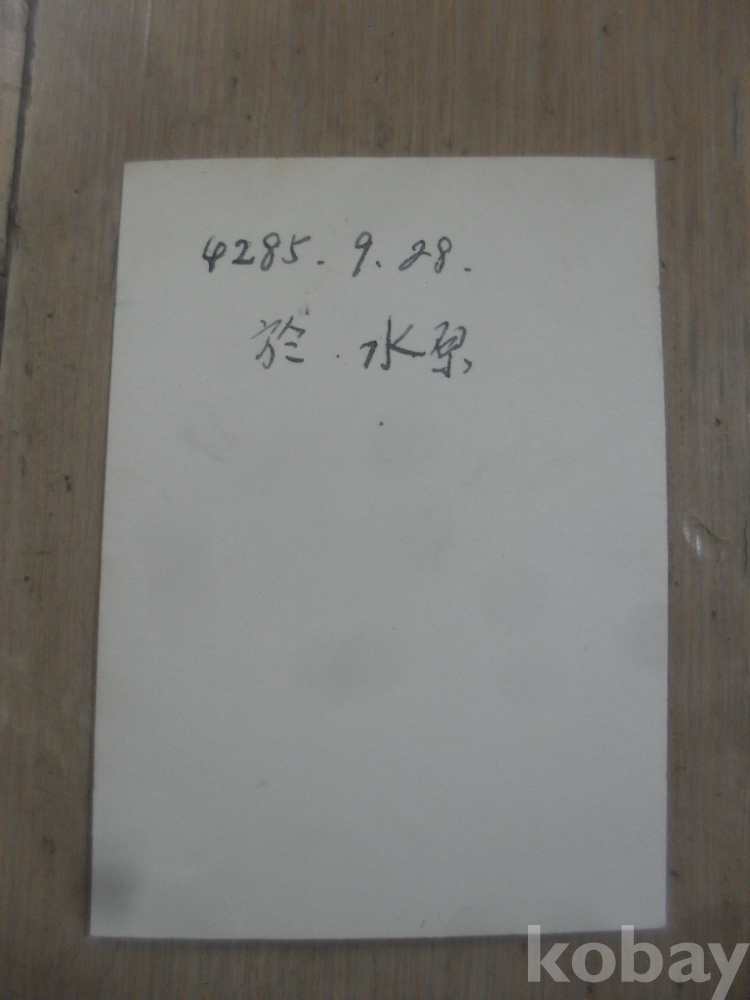 4285. 9. 28.
於. 水原
kobay